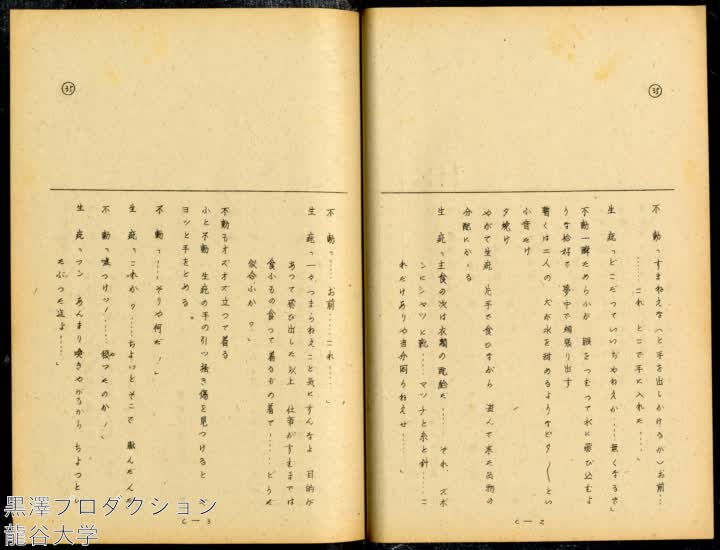 ㉟
不動「すまねえな(と手を出しかけるが)お前…
……これ どこで手に入れた……」
生庭「どこだっていいぢゃねえか……無くなるぞ」
不動一瞬ためらふが 眼をつむって水に飛び込むよ
うな恰好で 夢中で頬張り出す
暫くは二人の 犬が水を甜めるようなピタ〱とい
ふ音だけ
夕焼け
やがて生庭 片手で食ひながら 盗んで来た品物の
分配にかゝる
生庭「主食の次は衣類の配給だ…… それ、ズボ
ンにシャツと靴……マッチと糸と針……こ
れだけありや当分困らねえぜ……」
C—2
㉟
不動「……お前……これ……」
生庭「一々つまらねえこと気にすんなよ 目的が
あって飛び出した以上 仕事がすむまでは
食ふもの食って着るもの着て……どうだ
似合ふか?」
不動もオズオズ立って着る
ふと不動 生庭の手の引っ掻き傷を見つけると
ヨッと手をとめる。
不動「……そりや何だ!」
生庭「これか?……ちょいとそこで
不動「嘘つけッ!……殺ったのか!」
生庭「フン あんまり喚きやがるから ちょっと
たぶった迄よ……」
C—3
黒澤プロダクション
龍谷大学